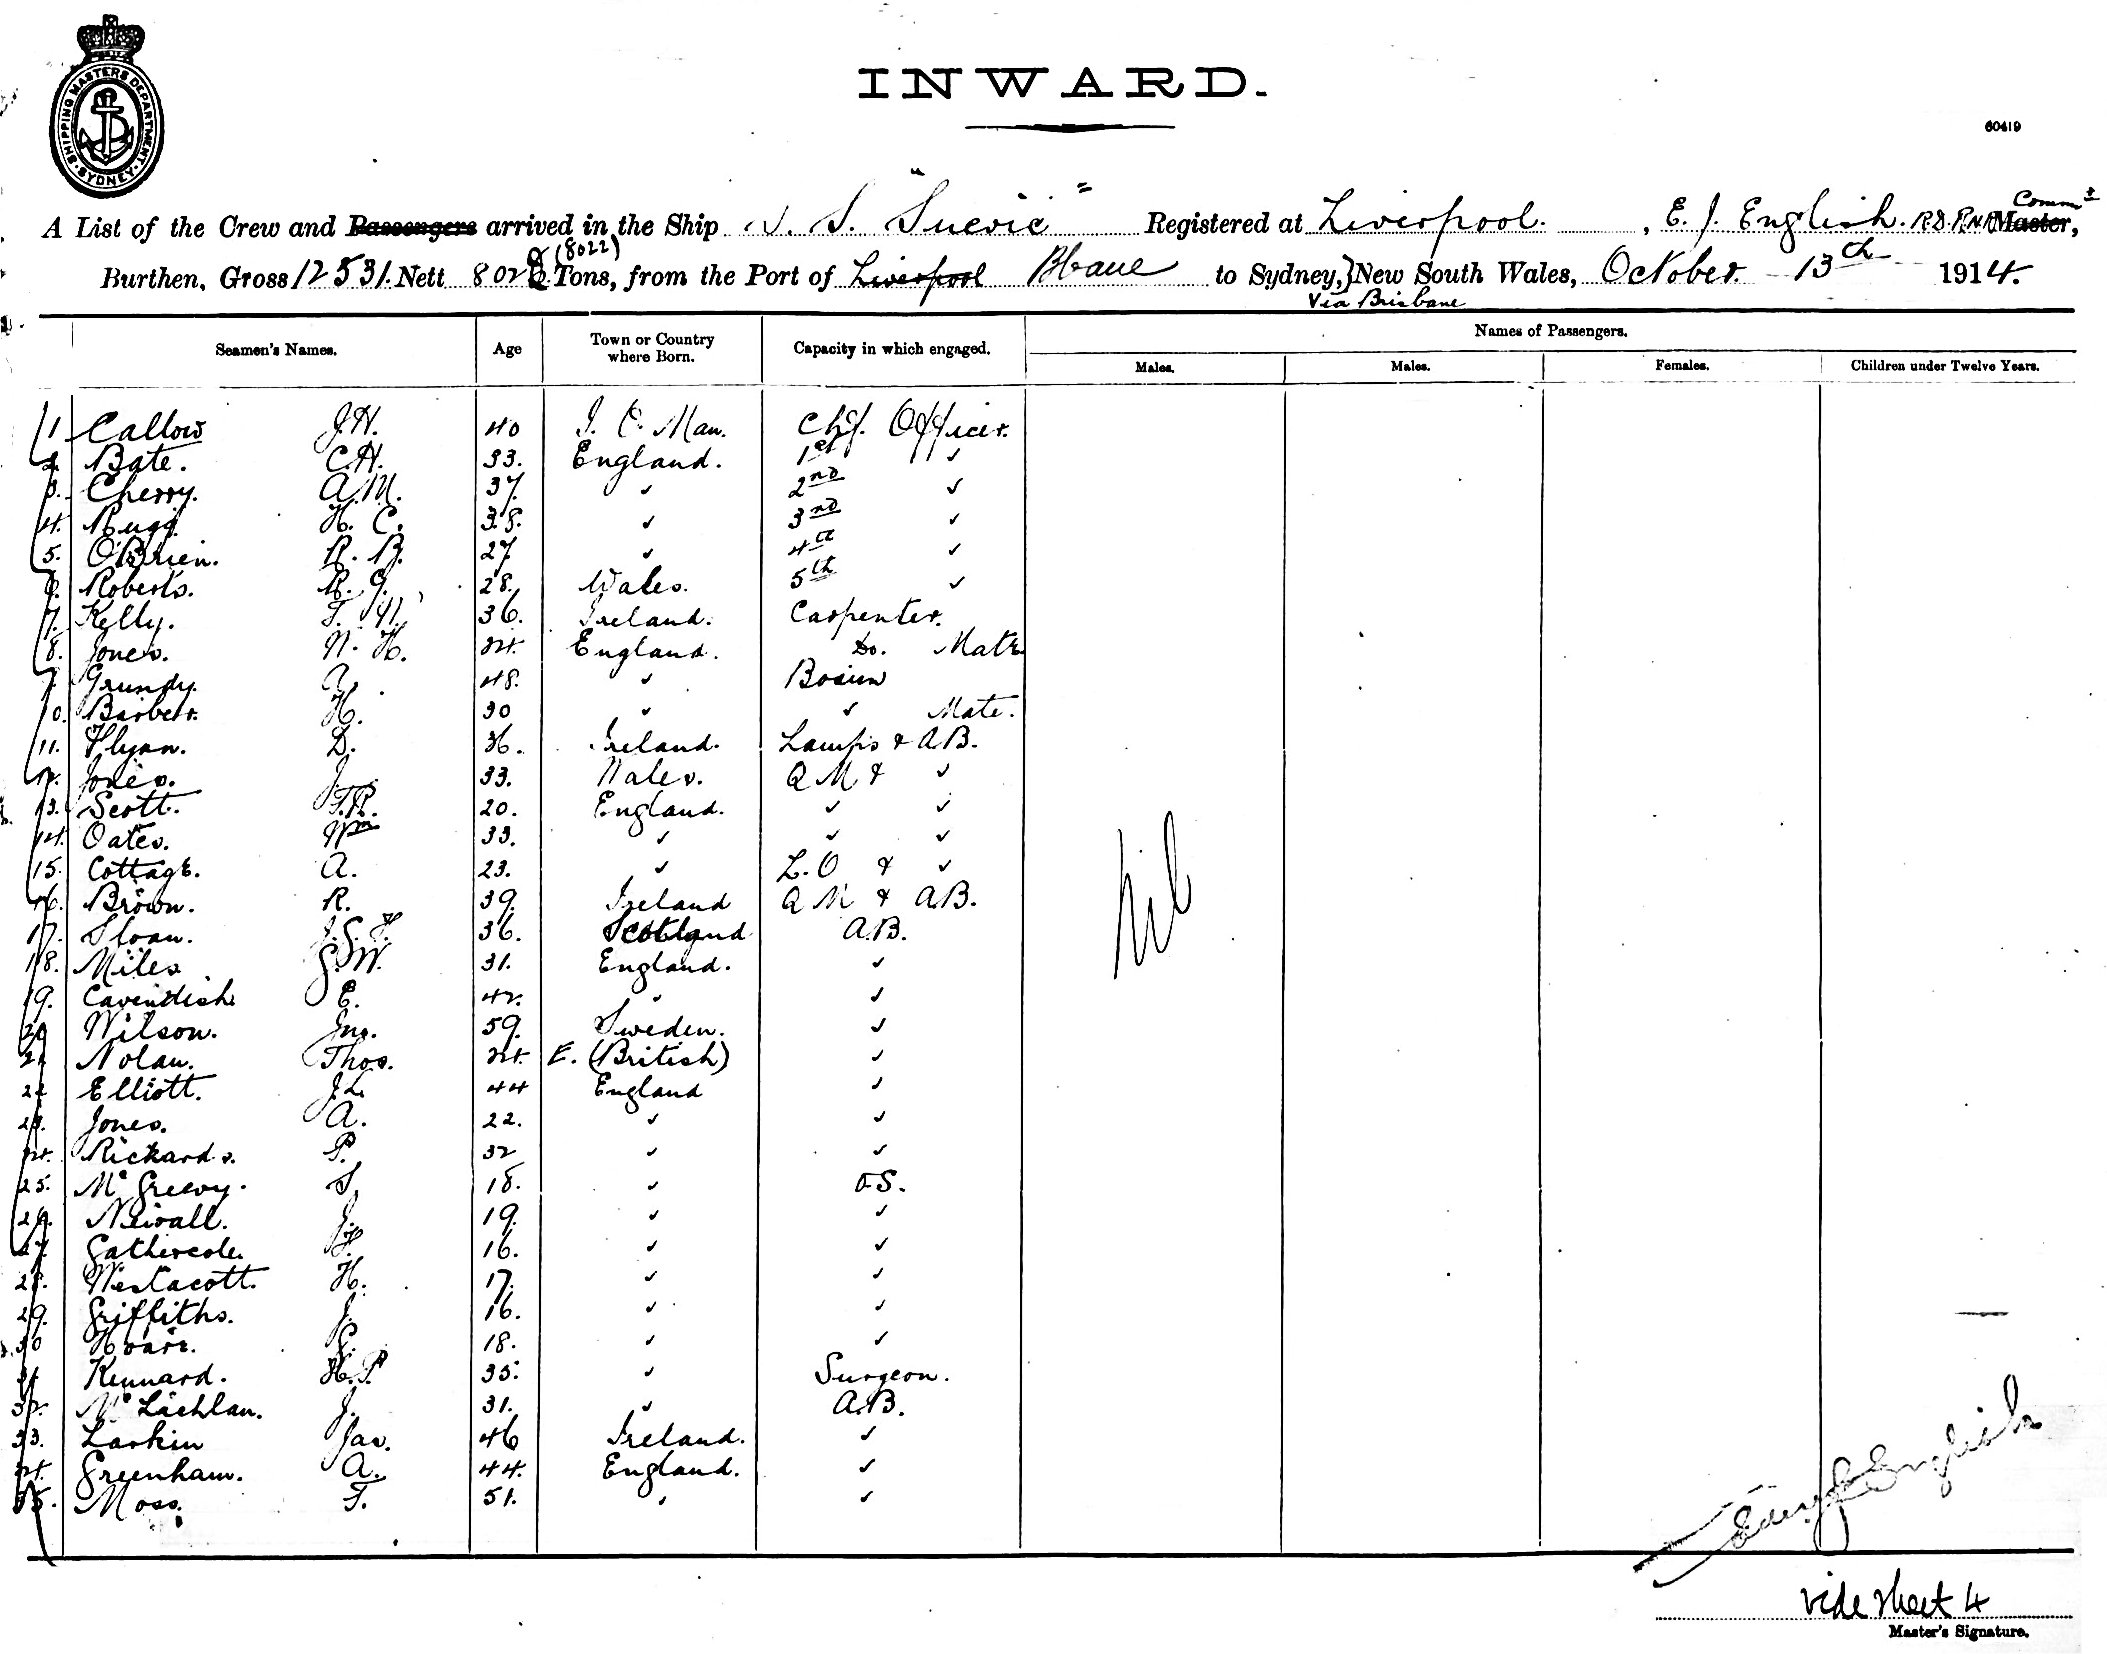 SHIPPING MASTERS DEPARTMENT. SYDNEY
INWARD.
60419
A List of the Crew and Passengers arrived in the Ship S. S. "Suevic" Registered at Liverpool. , E. J. English. R.D. R.N.R. Master, Commr
Burthen, Gross 12531. Nett 8028 (8022) Tons, from the Port of Liverpool Bbane to Sydney, New South Wales, October. 13th 1914.
Via Brisbane
Seamen's Names. Age Town or Country where Born. Capacity in which engaged. Names of Passengers.
Males. Males. Females. Children under Twelve Years.
1 Callow J.H. 40 I. O. Man. Chf. Officer.
2. Bate. C.H. 33. England. 1st ✓
3. Cherry. A.M. 37 ✓ 2nd ✓
4. Rugg H. C. 38. ✓ 3rd ✓
5. O'Brien. R. B. 27 ✓ 4th ✓
6. Roberts. R. G. 28. Wales. 5th ✓
7. Kelly. T. 36. Ireland. Carpenter.
8. Jones. N. H. 24. England. Do. Mate
9. Grundy. 48. ✓ Bosun
10. Barber. H. 30 ✓ ✓ Mate.
11. Flynn. D. 36. Ireland. Lamps & A.B.
12. Jones. J. 33. Wales. Q M & ✓
13. Scott. T.R. 20. England. ✓ ✓
14. Oates. Wm 33. ✓ ✓ ✓
15. Cottage. A. 23. ✓ L.O & ✓
16. Brown. R. 39. Ireland Q M & A.B.
17. Sloan. J.S.F. 36. Scotland A.B.
18. Miles G.W. 31. England. ✓
19. Cavendish. E. 42. ✓ ✓
20 Wilson. Jno. 59. Sweden. ✓
21 Nolan. Thos. 24. E. (British) ✓
22 Elliott. J.L. 44 England ✓
23. Jones. A. 22. ✓ ✓
24. Rickards. P. 32 ✓ ✓
25. McGreevy. S. 18. ✓ O.S.
26. Newall. J. 19. ✓ ✓
27. Gathercole. F. 16. ✓ ✓
28. Westacott. H. 17. ✓ ✓
29. Griffiths. J. 16. ✓ ✓
30 Hoare. G. 18. ✓ ✓
31 Kennard. H.P. 35. ✓ Surgeon.
32. McLachlan. J. 31. ✓ A.B.
33. Larkin Jas. 46 Ireland. ✓
34. Greenham. A. 44. England. ✓
35. Moss. T. 51. ✓ ✓
Nil
English
vide sheet 4
Master's Signature.